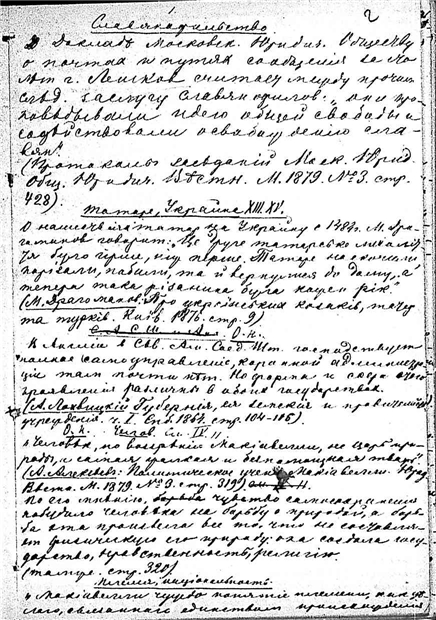 Славянофильство
В докладѣ Московск. Юридич. Обществу
о почтахъ и путяхъ сообщенія
г. Лешков считает между прочим
слѣд. заслугу славянофиловъ: „они про
повѣдывали идею общей свободы и
содѣйствовали освобожденію сла
вян“.
(Протоколы засѣданій Моск. Юрид.
Общ. Юридич. Вѣстн. М. 1879. №3. стр.
428).
Татаре, Украйна XIII. XV.
О нашествіи татар на Украйну с 1482г. М. Дра
гоманов говорит: „Це друге татарське
було гірше, ніж перше. Татаре наскочили
порізали, попалили, та й вернулися до дому, а
тепера така різанина була кащен рік.“
(М. Драгоманов. Про українських козаків, татар
та турків. Київ. 1876. стр. 9)
О. Н.
В Англіи и Сѣв. Ам. Соед. Шт. господствует
полное самоуправленіе, коронной администра
ціи там почти нѣт. Но форма и сида этого
управленія различны в обоих государствах.
(А. Лохвицкій Губернія, ея земскія и правительст.
учрежденія. ч. I. Спб. 1864. стр. 104-105).
О. Н. Человѣк. IV.
„Человѣк, по воззрѣнію Макіавелли, не царь при
роды, а самая жалкая и безпомощная тварь“.
(А. Алексѣевъ: Политическое ученіе Макіавелли. Юрид.
Вѣстн. М. 1879. №3. стр. 319)
По его мнѣнію, чувство самосохраненія
побудило человѣка на борьбу с природой, а борь
ба эта произвела все то, что не составля
ет физическую его природу: она создала госу
дарство, нравственность, религію.
(там же. стр. 320)
Племя, національность.
„Макіавелли чуждо понятіе племени, как цѣ
лаго, связаннаго единством происхожденія